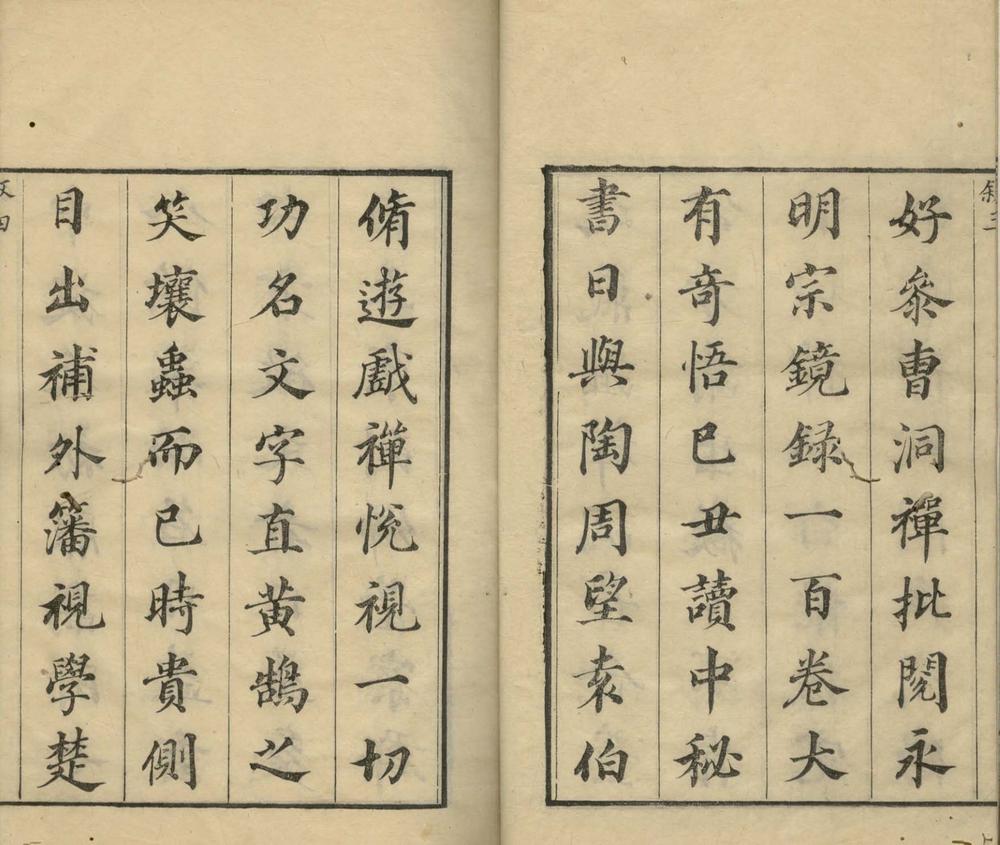 好叅曹洞禪批閱永
明宗鏡録一百卷大
有奇悟已丑讀中秘
書日與陶周望袁伯
脩遊戲禪悅視一切
功名文字直黄鵠之
笑壤蟲而已時貴側
目出補外藩視學楚